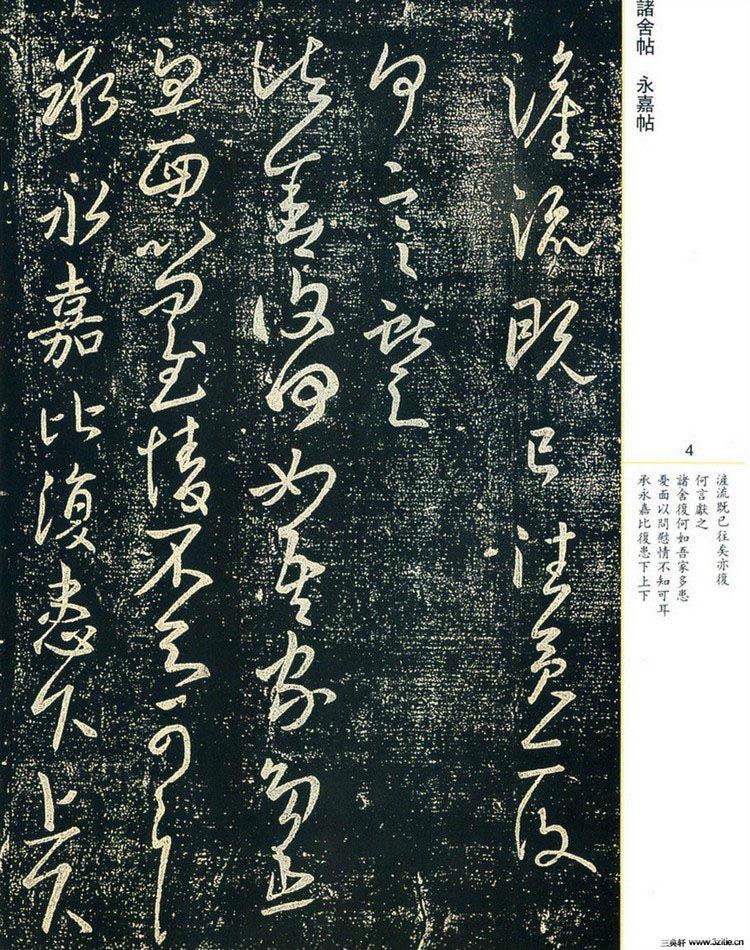 諸舍帖　永嘉帖
4
滻流既已往矣亦復
何言獻之
諸舍復何如吾家多患
憂面以問慰情不知可耳
承永嘉比復患下上下
三奐轩 www.3zitie.cn